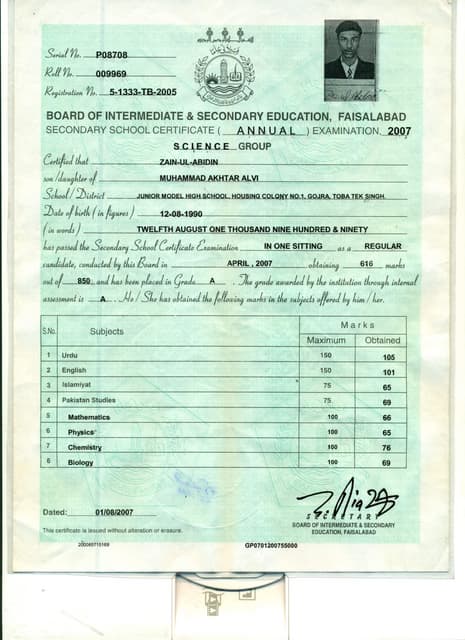 Serial No. P08708
Roll No. 009969
Registration No. 5-1333-TB-2005
BOARD OF INTERMEDIATE & SECONDARY EDUCATION, FAISALABAD
SECONDARY SCHOOL CERTIFICATE ( ANNUAL ) EXAMINATION, 2007
SCIENCE GROUP
Certified that ZAIN-UL-ABIDIN
son/daughter of MUHAMMAD AKHTAR ALVI
School / District JUNIOR MODEL HIGH SCHOOL, HOUSING COLONY NO.1, GOJRA, TOBA TEK SINGH.
Date of birth ( in figures ) 12-08-1990
( in words ) TWELFTH AUGUST ONE THOUSAND NINE HUNDRED & NINETY
has passed the Secondary School Certificate Examination IN ONE SITTING as a REGULAR
candidate, conducted by this Board in APRIL, 2007 obtaining 616 marks
out of 850, and has been placed in Grade A . The grade awarded by the institution through internal
assessment is A . He / She has obtained the following marks in the subjects offered by him / her.
S.No. Subjects Marks
Maximum Obtained
1 Urdu 150 105
2 English 150 101
3 Islamiyat 75 65
4 Pakistan Studies 75 69
5 Mathematics 100 66
6 Physics 100 65
7 Chemistry 100 76
8 Biology 100 69
SECRETARY
Dated: 01/08/2007
BOARD OF INTERMEDIATE & SECONDARY
EDUCATION, FAISALABAD
This certificate is issued without alteration or erasure.
200060710169 GP0701200755000